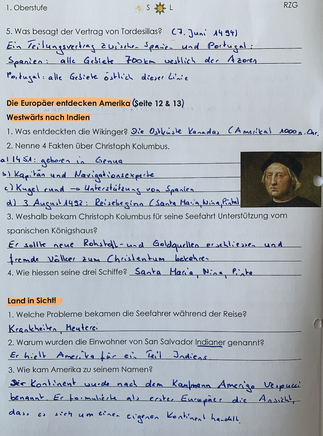 1. Oberstufe
S O L
RZG
5. Was besagt der Vertrag von Tordesillas? (7. Juni 1494)
Ein Teilungsvertrag zwischen Spanien und Portugal:
Spanien: alle Gebiete 700km westlich der Azoren
Portugal: alle Gebiete östlich dieser Linie
Die Europäer entdecken Amerika (Seite 12 & 13)
Westwärts nach Indien
1. Was entdecken die Wikinger? Die Ostküste Kanadas (Amerika) 1000 n. Chr.
2. Nenne 4 Fakten über Christoph Kolumbus.
a) 1451: geboren in Genua
b) Kapitän und Navigationsexperte
c) Kugel rund → Unterstützung von Spanien
d) 3. August 1492: Reisebeginn (Santa Maria, Nina, Pinta)
3. Weshalb bekam Christoph Kolumbus für seine Seefahrt Unterstützung vom
spanischen Königshaus?
Er sollte neue Rohstoff- und Goldquellen erschliessen und
fremde Völker zum Christentum bekehren
4. Wie hiessen seine drei Schiffe? Santa Maria, Nina, Pinta
Land in Sicht!
1. Welche Probleme bekamen die Seefahrer während der Reise?
Krankheiten, Meuterei
2. Warum wurden die Einwohner von San Salvador Indianer genannt?
Er hielt Amerika für ein Teil Indiens
3. Wie kam Amerika zu seinem Namen?
Der Kontinent wurde nach dem Kaufmann Amerigo Vespucci
benannt. Er formulierte als erster Europäer die Ansicht,
dass es sich um einen eigenen Kontinent handelt.